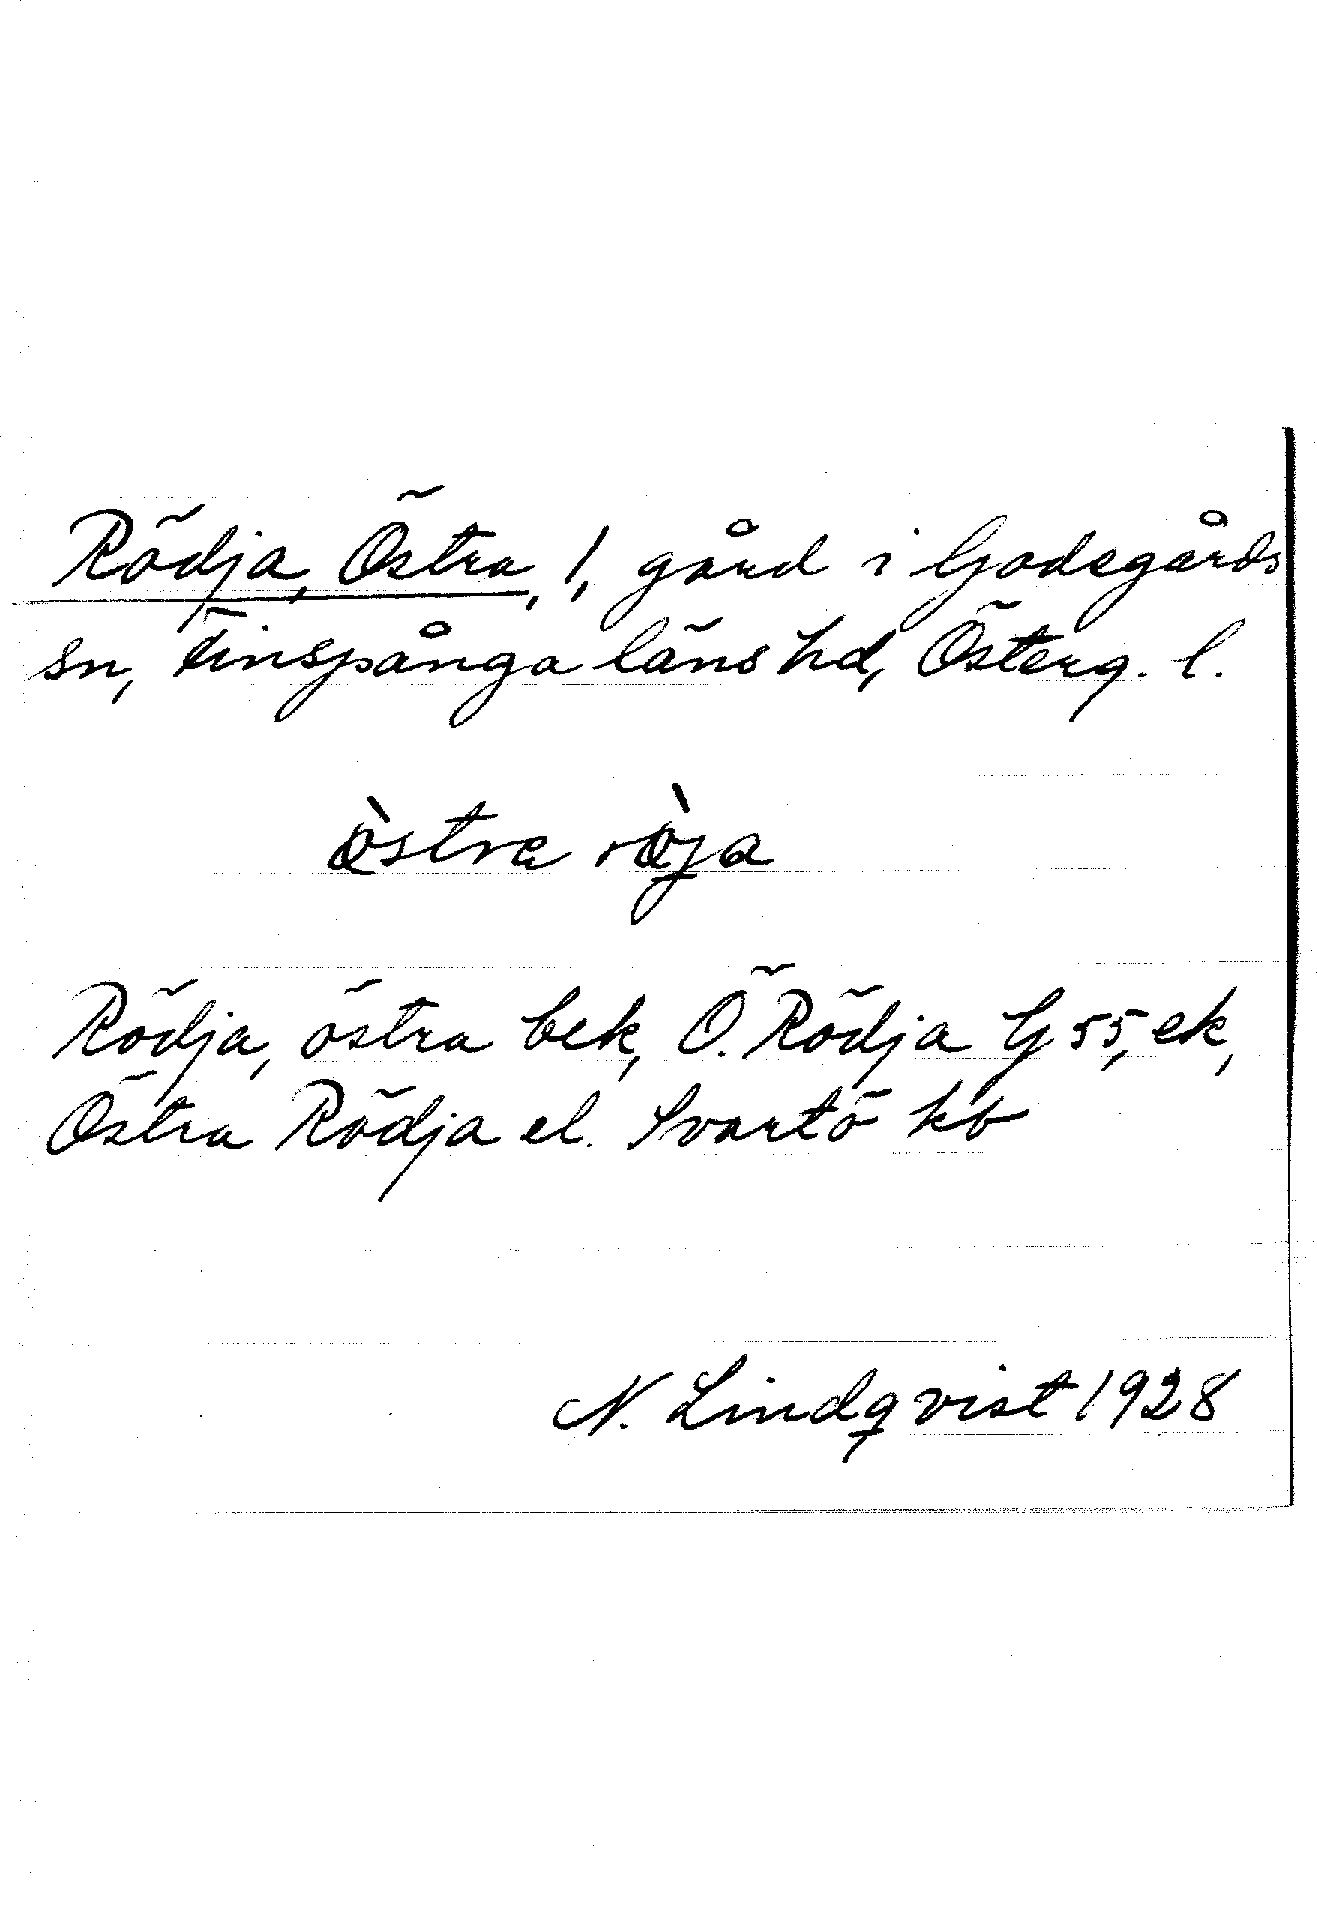 Rödja, Östra, 1, gård i Godegårds
sn, Finspånga läns hd, Österg. l.
ö̀stra rö̀ja
Rödja, östra bek, Ö. Rödja G 55, ek,
Östra Rödja el. Svartö kb
N. Lindqvist 1928